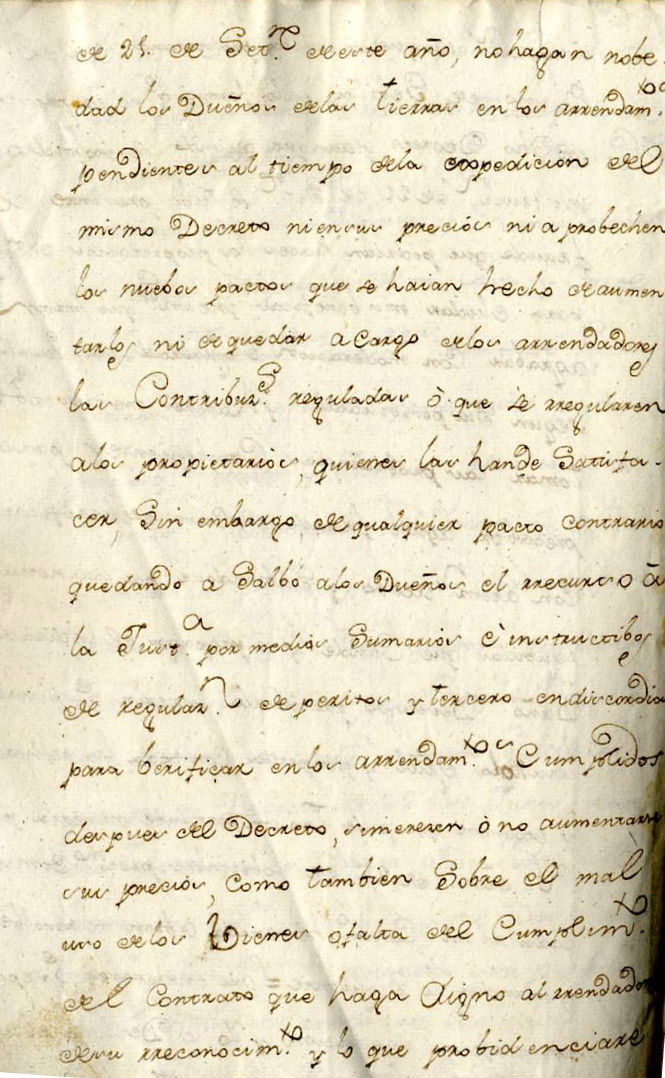 de 21. de Set.e de este año, no hagan nobe
dad los Dueños delas tierras en los arrendam.tos
pendientes al tiempo dela expedicion del
mismo Decreto ni ensus precios ni aprobechen
los nuebos pactos que se haian hecho de aumen
tarlos ni de quedar á cargo delos arrendadores
las Contribuz.s reguladas ò que se rregularen
alos propietarios, quienes las hande Satisfa-
cer, Sin embargo, de qualquier pacto contrario
quedando a Salbo alos Dueños el rrecurso â
la Just.a por medios Sumarios è instructibos
de regular.n de peritos y tercero endiscordia
para berificar en los arrendam.tos Cumplidos
despues del Decreto, simerezen ò no aumentarse
sus precios, como tambien Sobre el mal
uso delos Bienes ofalta del Cumplim.to
del Contrato que haga digno al rrendador
desu rreconocim.to y lo que probidenciare